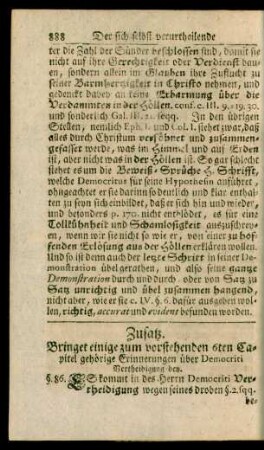 888 Der sich selbst verurtheilende
ter die Zahl der Sünder beschlossen sind, damit sie
nicht auf ihre Gerechtigkeit oder Verdienst bauen,
sondern allein im Glauben ihre Zuflucht zu
seiner Barmhertzigkeit in Christo nehmen, und
gedenckt dabey an keine Erbarmung über die
Verdammten in der Höllen, conf. c. III. 9. 19. 30.
und sonderlich Gal. III. 22. seqq. In den übrigen
Stellen, nemlich Eph. I. und Col. I. siehet zwar, daß
alles durch Christum versöhnet und zusammen-
gefasset werde, was im Himmel und auf Erden
ist, aber nicht was in der Höllen ist. So gar schlecht
siehet es um die Beweiß-Sprüche H. Schrifft,
welche Democritus für seine Hypothesin anführet,
ohngeachtet er sie darinn so deutlich und klar enthal-
ten zu seyn sich einbildet, daß er sich hin und wieder,
und besonders p. 170. nicht entblödet, es für eine
Tollkühnheit und Schamlosigkeit auszuschrey-
en, wenn wir sie nicht auch für Beweise einer zu hof-
fenden Erlösung aus der Höllen erklären wollen.
Und so ist denn auch der letzte Schritt in seiner De-
monstration übel gerathen, und also seine gantze
Demonstration durch und durch oder von Satz zu
Satz unrichtig und übel zusammen hangend,
nicht aber, wie er sie c. LV. §. 6. dafür ausgeben wol-
len, richtig, accurat und evident befunden worden.
Zusatz.
Bringet einige zum vorstehenden 6ten Ca-
pitel gehörige Erinnerungen über Democriti
Vertheidigung bey.
§. 86. ES kommt in des Herrn Democriti Ver-
theidigung wegen seines droben §. 2. sqq.
be-